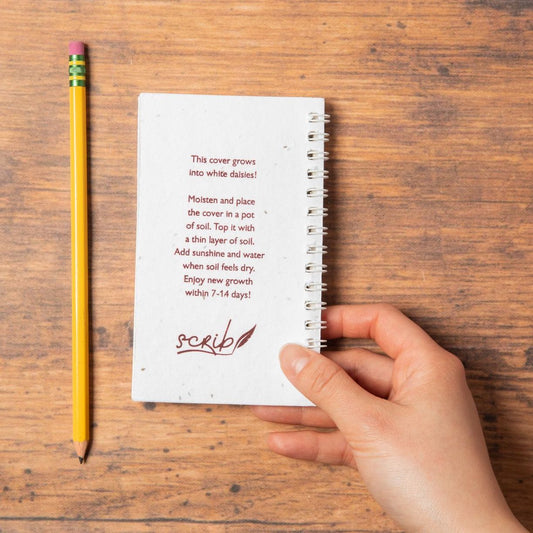 This cover grows
into white daisies!
Moisten and place
the cover in a pot
of soil. Top it with
a thin layer of soil.
Add sunshine and water
when soil feels dry.
Enjoy new growth
within 7-14 days!
scrib